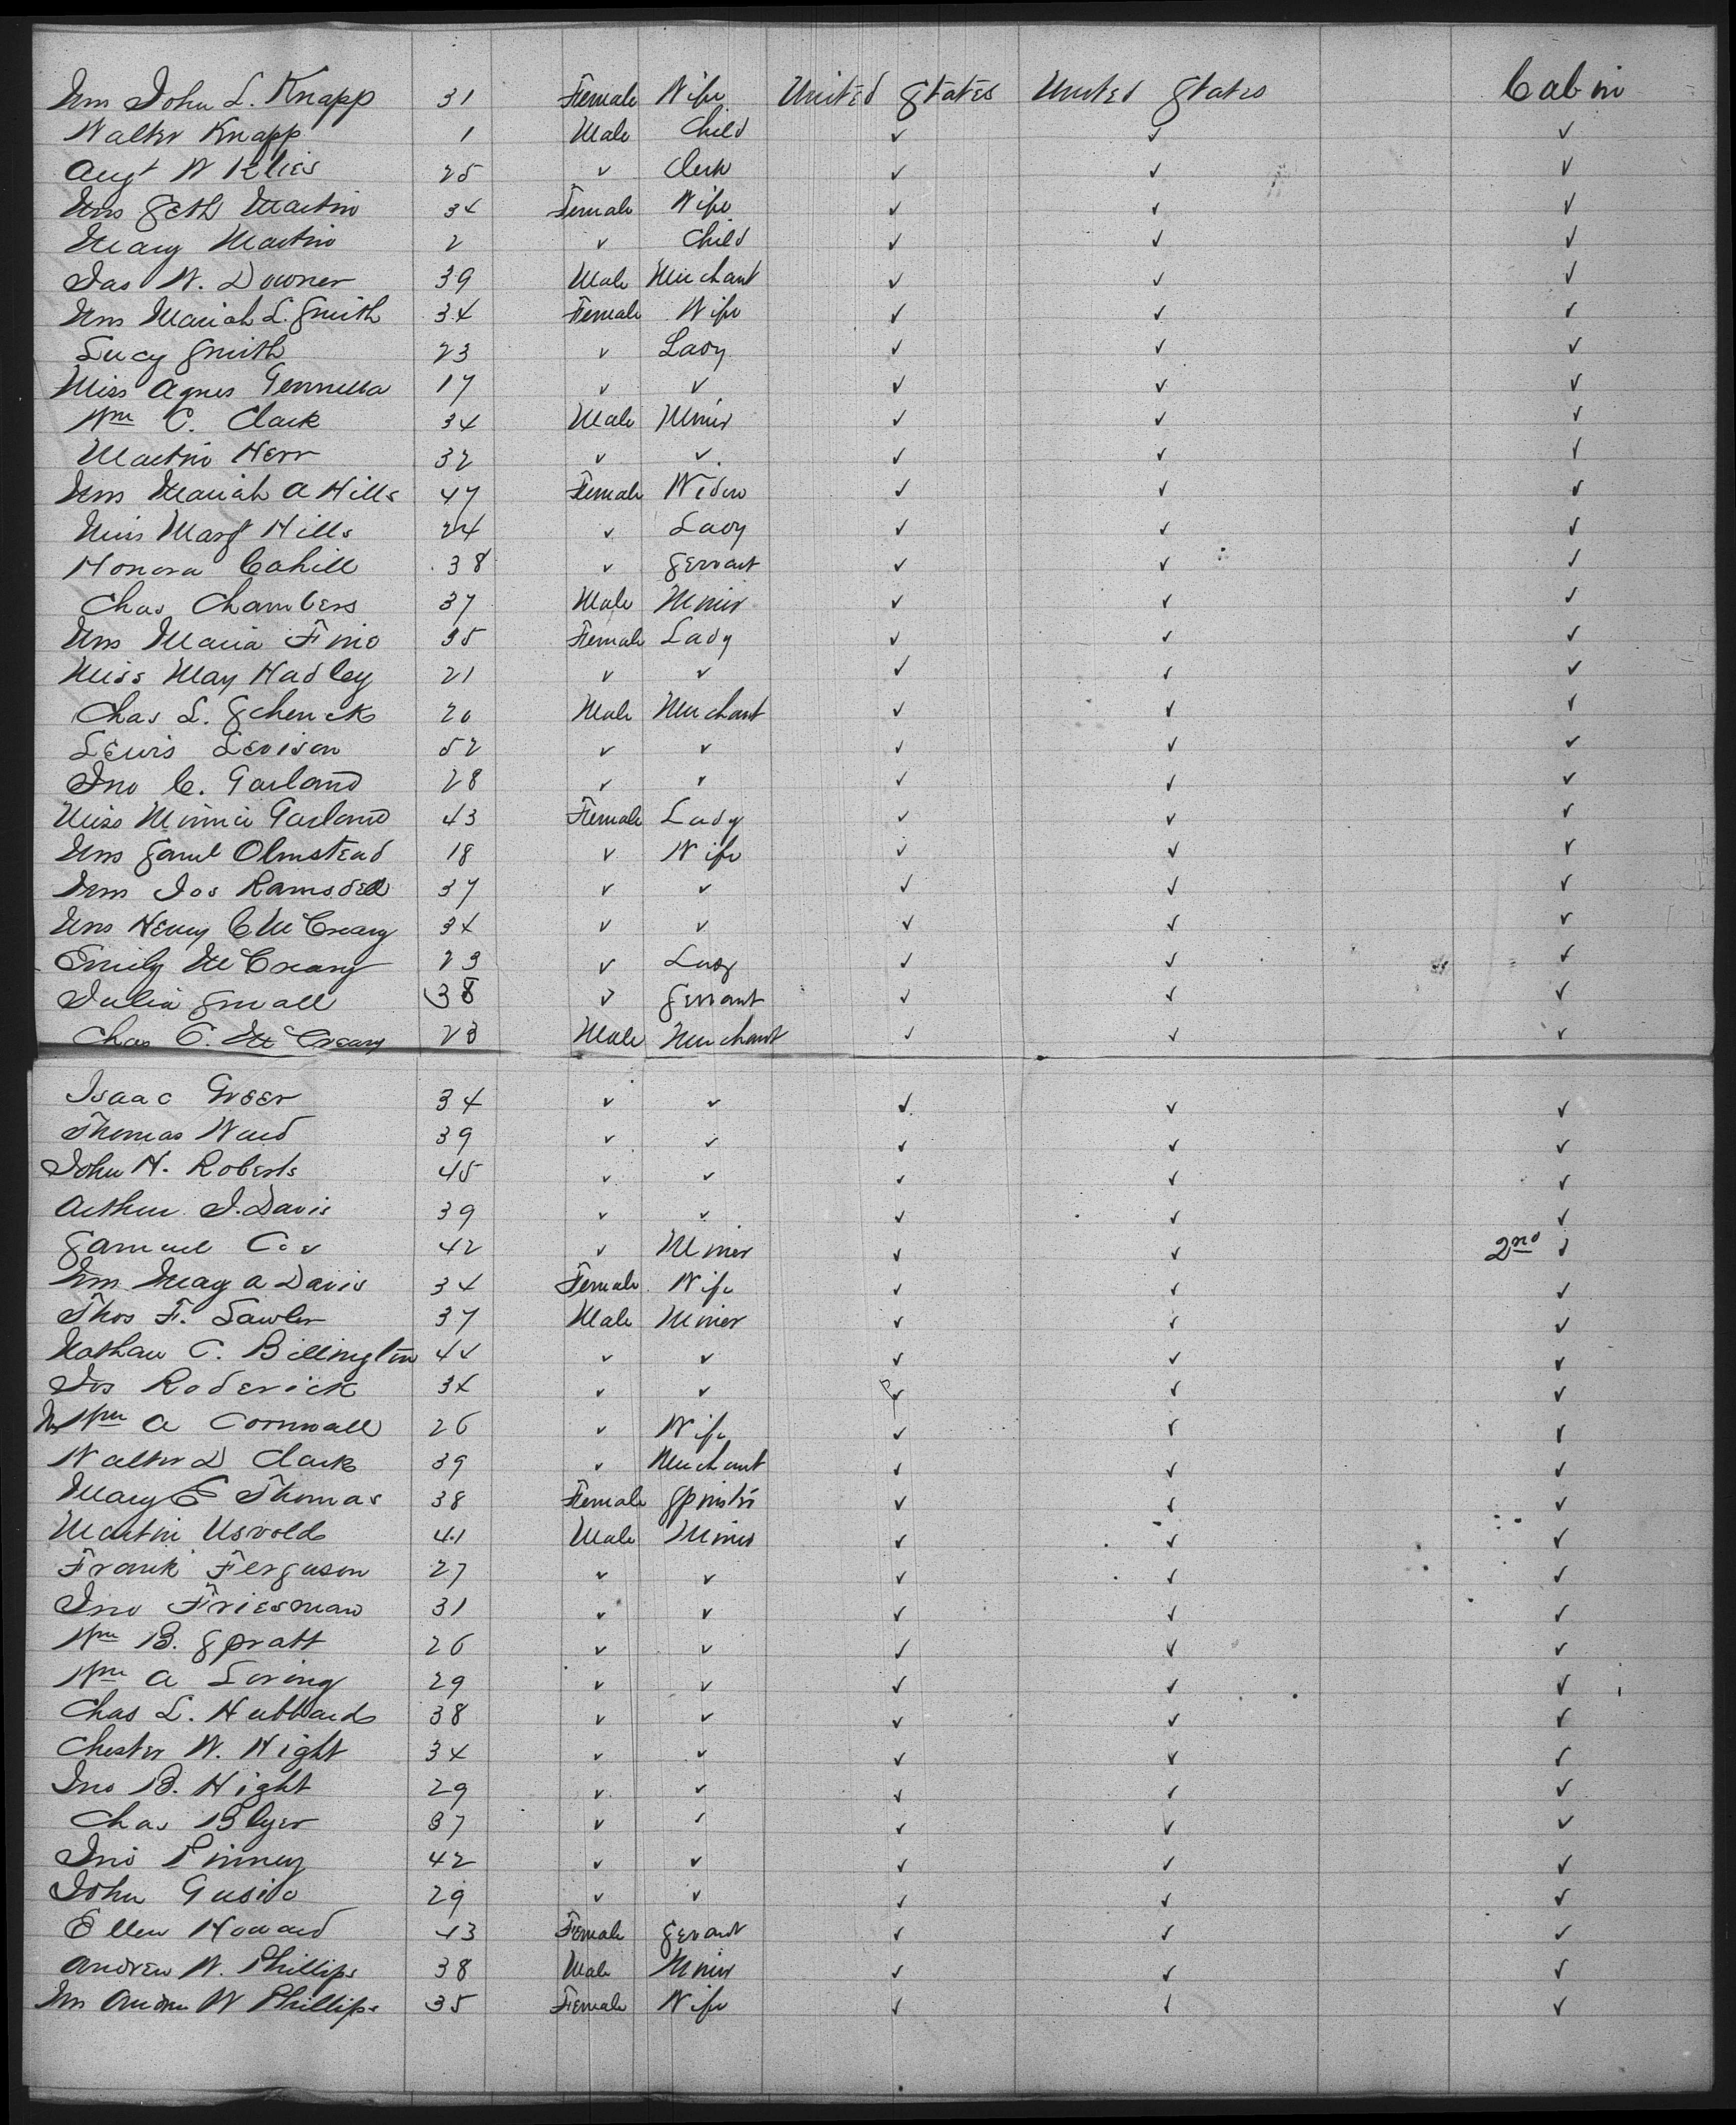 Mrs John L. Knapp 31 Female Wife United States United States Cabin
Walter Knapp 1 Male Child ✓ ✓ ✓
Augt W Klies 25 ✓ Clerk ✓ ✓ ✓
Mrs Seth Martin 34 Female Wife ✓ ✓ ✓
Mary Martin 2 ✓ Child ✓ ✓ ✓
Jas W. Downer 39 Male Merchant ✓ ✓ ✓
Mrs Mariah L. Smith 34 Female Wife ✓ ✓ ✓
Lucy Smith 23 ✓ Lady ✓ ✓ ✓
Miss Agnes 17 ✓ ✓ ✓ ✓ ✓
Wm C. Clark 34 Male Miner ✓ ✓ ✓
Martin Herr 32 ✓ ✓ ✓ ✓ ✓
Mrs Mariah A Hills 47 Female Widow ✓ ✓ ✓
Miss Margt Hills 24 ✓ Lady ✓ ✓ ✓
Honora Cahill 38 ✓ Servant ✓ ✓ ✓
Chas Chambers 37 Male Miner ✓ ✓ ✓
Mrs Maria Fino 35 Female Lady ✓ ✓ ✓
Miss May Hadley 21 ✓ ✓ ✓ ✓ ✓
Chas L. Schenck 20 Male Merchant ✓ ✓ ✓
Lewis Levison 52 ✓ ✓ ✓ ✓ ✓
Jno C. Garland 28 ✓ ✓ ✓ ✓ ✓
Miss Minnie Garland 43 Female Lady ✓ ✓ ✓
Mrs Saml Olmstead 18 ✓ Wife ✓ ✓ ✓
Mrs Jos Ramsdell 37 ✓ ✓ ✓ ✓ ✓
Mrs Henry C McCreary 34 ✓ ✓ ✓ ✓ ✓
Emily McCreary 23 ✓ Lady ✓ ✓ ✓
Julia Small 38 ✓ Servant ✓ ✓ ✓
Chas C. McCreary 23 Male Merchant ✓ ✓ ✓
Isaac Greer 34 ✓ ✓ ✓ ✓ ✓
Thomas Ward 39 ✓ ✓ ✓ ✓ ✓
John H. Roberts 45 ✓ ✓ ✓ ✓ ✓
Arthur J. Davis 39 ✓ ✓ ✓ ✓ ✓
Samuel Cox 42 ✓ Miner ✓ ✓ 2nd ✓
Mrs May A Davis 34 Female Wife ✓ ✓ ✓
Thos F. Lawler 37 Male Miner ✓ ✓ ✓
Nathan C. Billington 44 ✓ ✓ ✓ ✓ ✓
Jos Roderick 34 ✓ ✓ ✓ ✓ ✓
Mrs Wm A Cornwall 26 ✓ Wife ✓ ✓ ✓
Walter D Clark 39 ✓ Merchant ✓ ✓ ✓
Mary E Thomas 38 Female Spinster ✓ ✓ ✓
Martin Usvold 41 Male Miner ✓ ✓ ✓
Frank Ferguson 27 ✓ ✓ ✓ ✓ ✓
Jno Friesman 31 ✓ ✓ ✓ ✓ ✓
Wm B. Spratt 26 ✓ ✓ ✓ ✓ ✓
Wm A Loring 29 ✓ ✓ ✓ ✓ ✓
Chas L. Hubbard 38 ✓ ✓ ✓ ✓ ✓
Chester W. Hight 34 ✓ ✓ ✓ ✓ ✓
Jno B. Hight 29 ✓ ✓ ✓ ✓ ✓
Chas Blyer 37 ✓ ✓ ✓ ✓ ✓
Jno Pinney 42 ✓ ✓ ✓ ✓ ✓
John Gusio 29 ✓ ✓ ✓ ✓ ✓
Ellen Howard 43 Female Servant ✓ ✓ ✓
Andrew W. Phillips 38 Male Miner ✓ ✓ ✓
Mrs Andrew W Phillips 35 Female Wife ✓ ✓ ✓